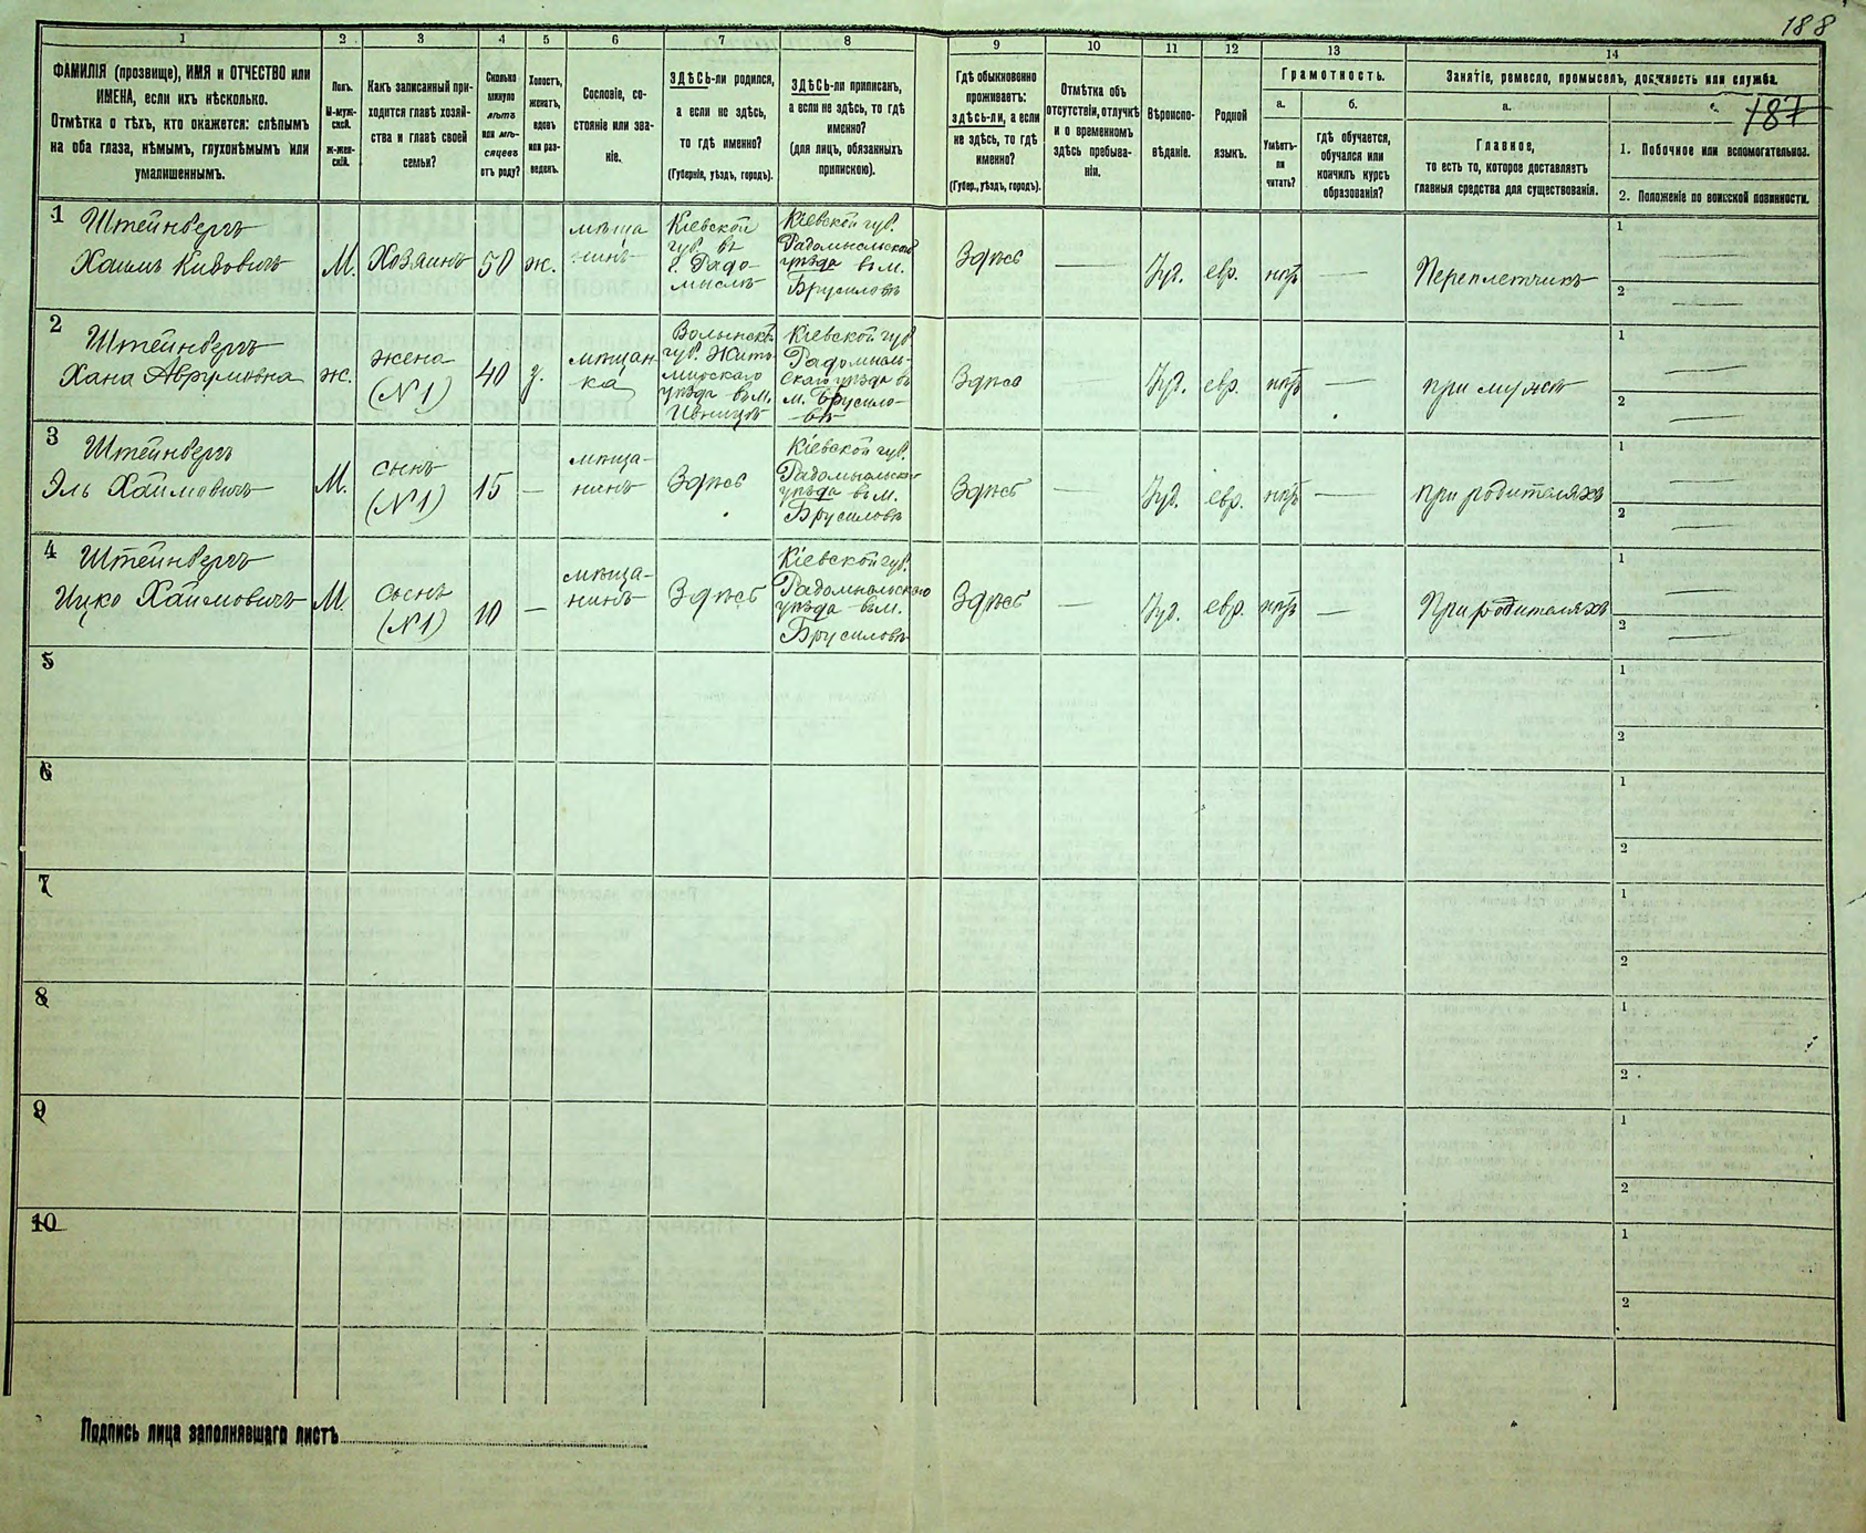 188
187
1
2
3
4
5
6
7
8
9
10
11
12
13
14
ФАМИЛІЯ (прозвище), ИМЯ и ОТЧЕСТВО или
ИМЕНА, если ихъ нѣсколько.
Отмѣтка о тѣхъ, кто окажется: слѣпымъ
на оба глаза, нѣмымъ, глухонѣмымъ или
умалишеннымъ.
Полъ.
М-муж-
ской.
ж-жен-
скій.
Какъ записанный при-
ходится главѣ хозяй-
ства и главѣ своей
семьи?
Сколько
минуло
лѣтъ
или мѣ-
сяцевъ
отъ роду?
Холостъ,
женатъ,
вдовъ
или раз-
веденъ.
Сословіе, со-
стояніе или зва-
ніе.
ЗДѢСЬ-ли родился,
а если не здѣсь,
то гдѣ именно?
(Губернія, уѣздъ, городъ).
ЗДѢСЬ-ли приписанъ,
а если не здѣсь, то гдѣ
именно?
(для лицъ, обязанныхъ
припискою).
Гдѣ обыкновенно
проживаетъ:
здѣсь-ли, а если
не здѣсь, то гдѣ
именно?
(Губер., уѣздъ, городъ).
Отмѣтка объ
отсутствіи, отлучкѣ
и о временномъ
здѣсь пребыва-
ніи.
Вѣроиспо-
вѣданіе.
Родной
языкъ.
Грамотность.
а.
Умѣетъ-
ли
читать?
б.
гдѣ обучается,
обучался или
кончилъ курсъ
образованія?
Занятіе, ремесло, промыселъ, должность или служба.
а.
Главное,
то есть то, которое доставляетъ
главныя средства для существованія.
1. Побочное или вспомогательное.
2. Положеніе по воинской повинности.
1
Штейнбергъ
Хаимъ Кивовичъ
М.
Хозяинъ
50
ж.
мѣща
нинъ
Кіевской
губ. въ
г. Радо-
мыслѣ
Кіевской губ.
Радомысльскаго
уѣзда въ м.
Брусиловѣ
Здѣсь
Іуд.
евр.
нѣтъ
Переплетчикъ
1
2
2
Штейнбергъ
Хана Аврумовна
ж.
жена
(№1)
40
з.
мѣщан-
ка
Волынской
губ. Жито-
мирскаго
уѣзда въ м.
Ивницѣ
Кіевской губ.
Радомысль-
скаго уѣзда въ
м. Брусило-
вѣ
Здѣсь
Іуд.
евр.
нѣтъ
при мужѣ
1
2
3
Штейнбергъ
Эль Хаимовичъ
М.
сынъ
(№1)
15
—
мѣща-
нинъ
Здѣсь
Кіевской губ.
Радомысльскаго
уѣзда въ м.
Брусиловѣ
Здѣсь
Іуд.
евр.
нѣтъ
при родителяхъ
1
2
4
Штейнбергъ
Ицко Хаимовичъ
М.
сынъ
(№1)
10
—
мѣща-
нинъ
Здѣсь
Кіевской губ.
Радомысльскаго
уѣзда въ м.
Брусиловѣ
Здѣсь
Іуд.
евр.
нѣтъ
При родителяхъ
1
2
5
1
2
6
1
2
7
1
2
8
1
2
9
1
2
10
1
2
Подпись лица заполнявшаго листъ